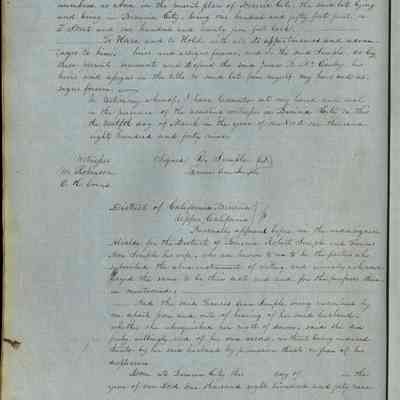 numbers as above in the recent plan of Benicia City, the said lot lying
and being in Benicia City, being one hundred and fifty feet front, on
I Street and one hundred and ninety five feet back.
To Have and to Hold with all its appurtenances and advan
tages to him, heirs and assigns forever, and to the said Semple, do by
these presents warrant and defend the said
heirs and assigns in the title to said lot from myself, my heirs and as-
signs forever.
In testimony whereof I have hereunto set my hand and seal
in the presence of the assisting witnesses in Benicia City on this
the twelfth day of March in the year of our Lord one thousand
eight hundred and forty nine.
Witnesses Signed Ro. Semple
W. Robinson
District of California Benicia
Upper California
Personally appeared before me the undersigned
Alcalde for the District of Benicia Robert Semple and Frances
Ann Semple his wife, who are known to me to be the parties who
subscribed the above instrument of writing, and severally acknow-
ledged the same to be their act and deed for the purposes there
in mentioned;
And the said Frances Ann Semple being examined by
me apart from and out of hearing of her said husband,
whether she relinquished her right of dower, said she did
freely, willingly and of her own accord, without being induced
thereto by her said husband by persuasion threats or fear of his
displeasure.
Done at Benicia City this day of in the
year of our Lord one thousand eight hundred and forty nine